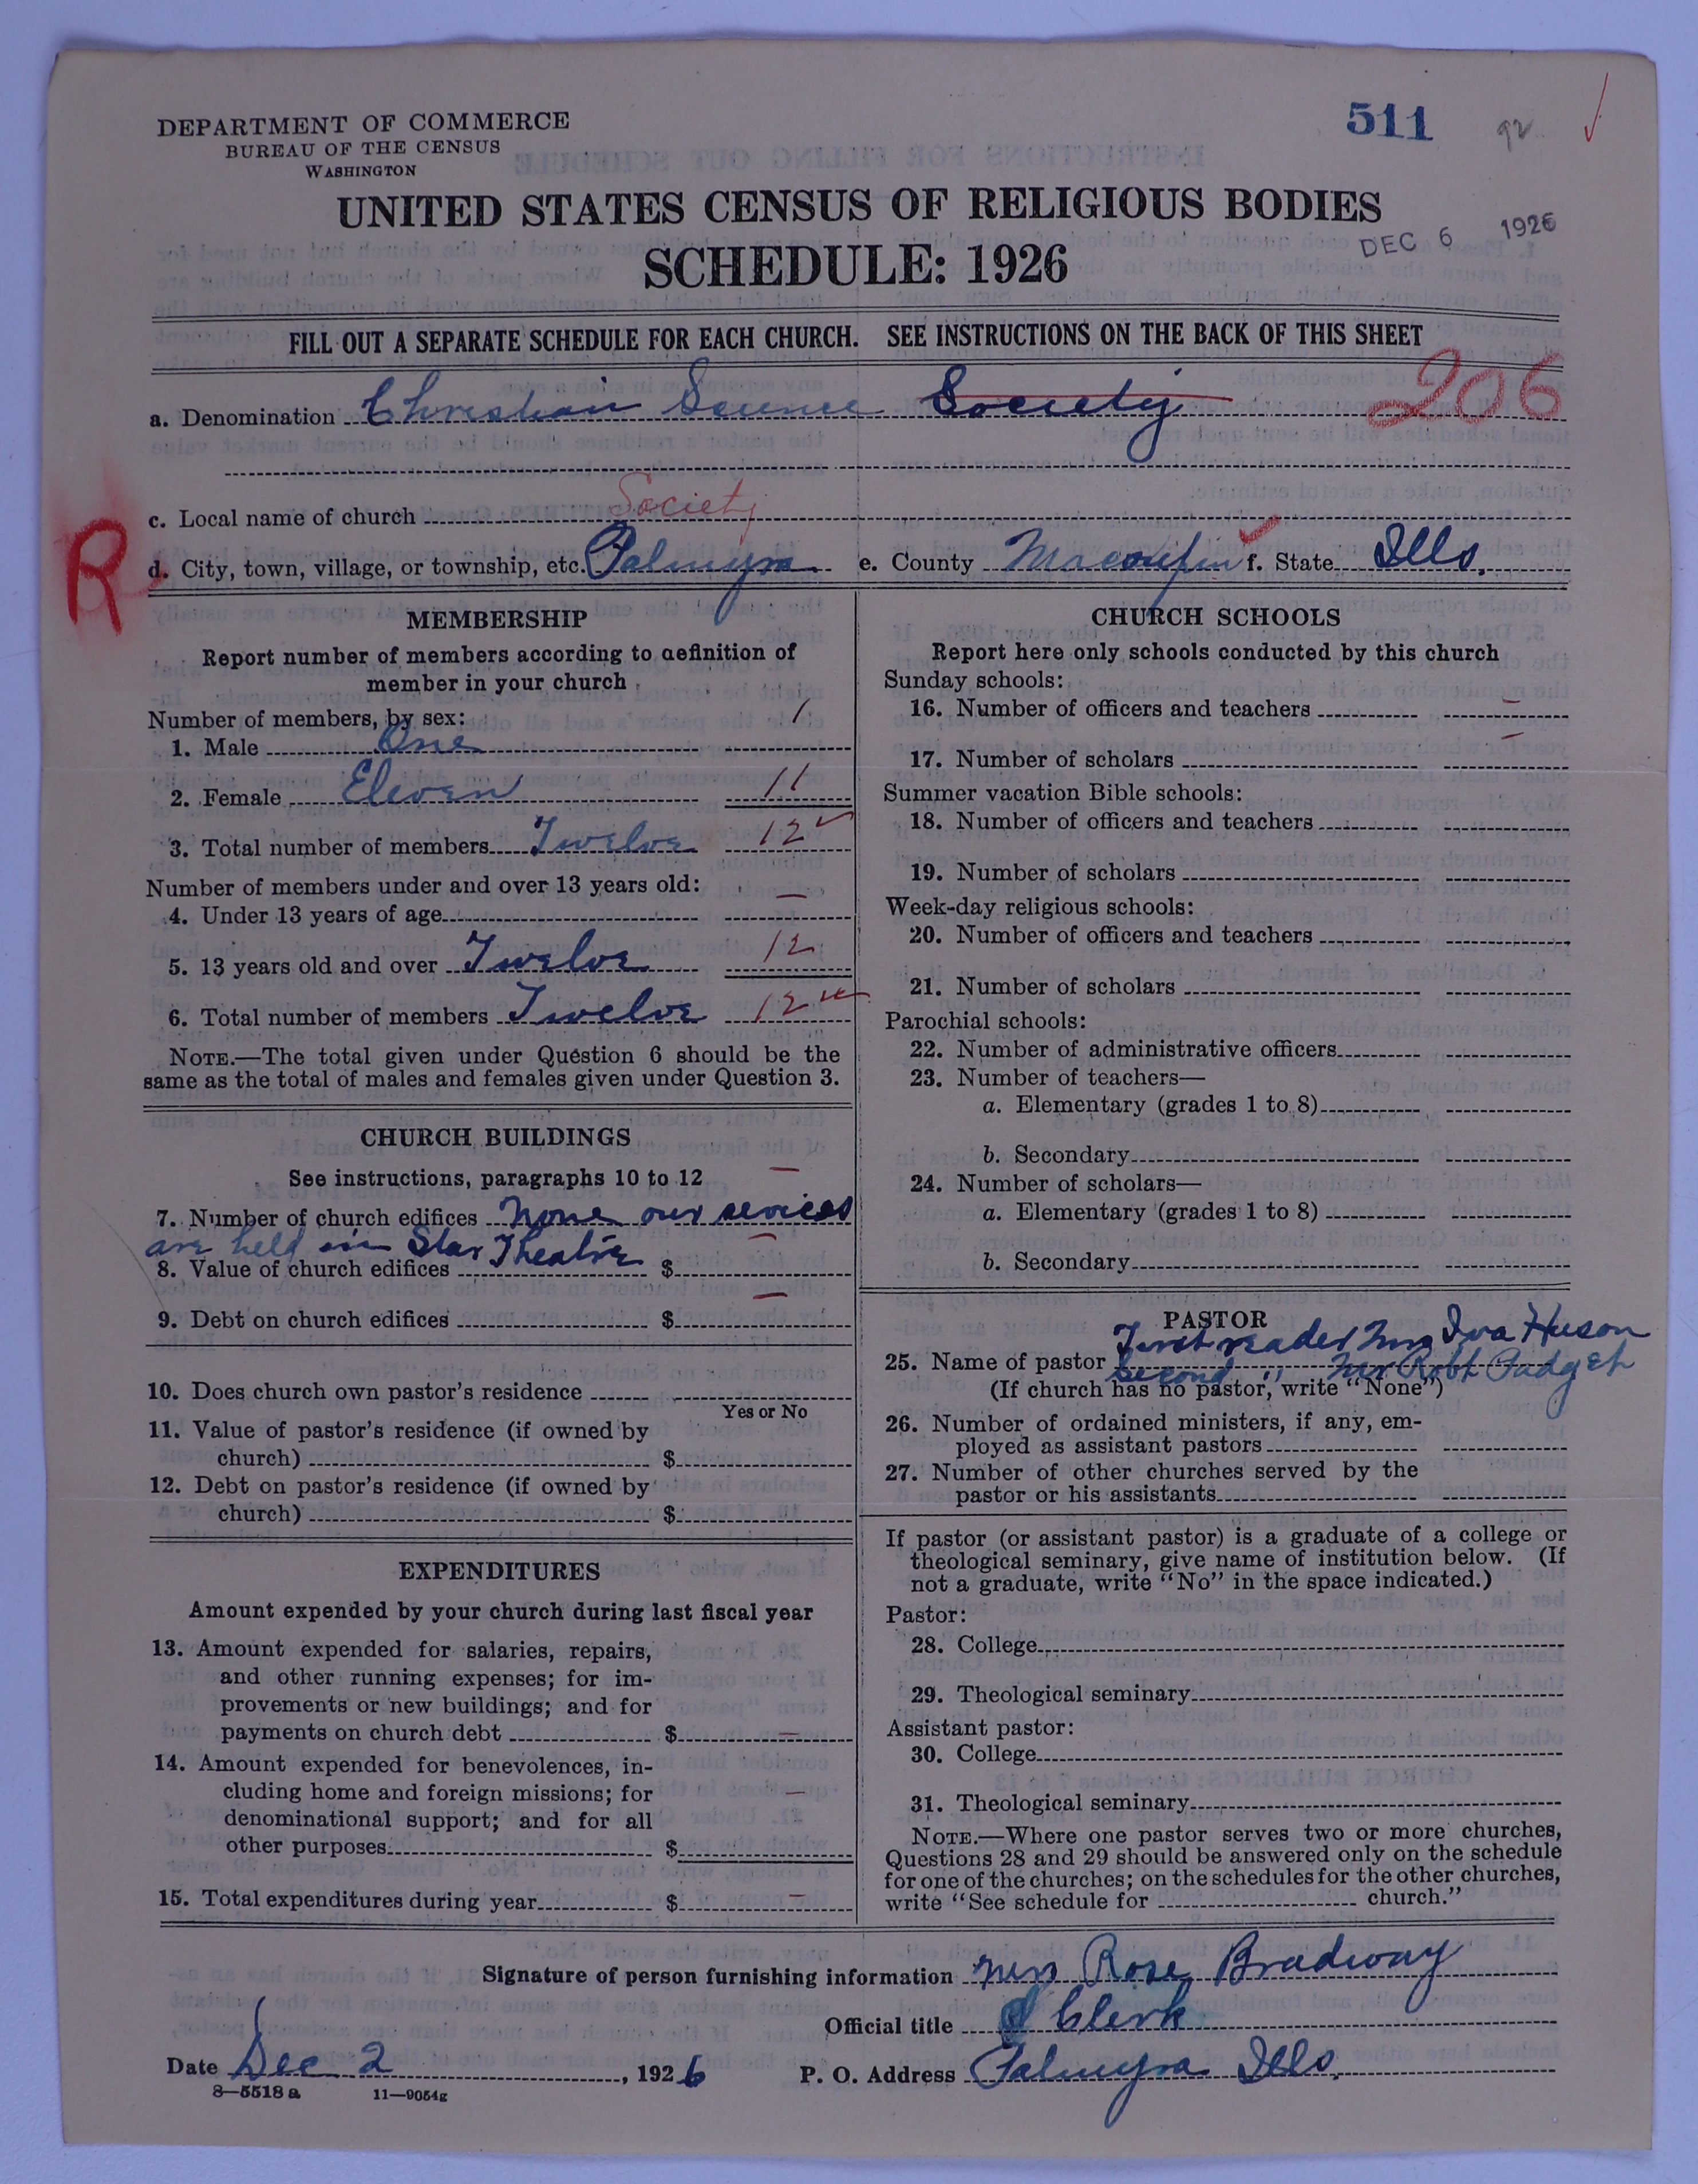 DEPARTMENT OF COMMERCE
BUREAU OF THE CENSUS
WASHINGTON
511
92
UNITED STATES CENSUS OF RELIGIOUS BODIES
DEC 6 1926
SCHEDULE: 1926
FILL OUT A SEPARATE SCHEDULE FOR EACH CHURCH. SEE INSTRUCTIONS ON THE BACK OF THIS SHEET
206
a. Denomination Christian Science Society
c. Local name of church Society
R
d. City, town, village, or township, etc. Palmyra e. County Macoupin f. State Ills.
MEMBERSHIP
Report number of members according to definition of
member in your church
Number of members, by sex:
1. Male One 1
2. Female Eleven 11
3. Total number of members Twelve 12
Number of members under and over 13 years old:
4. Under 13 years of age —
5. 13 years old and over Twelve 12
6. Total number of members Twelve 12
NOTE.—The total given under Question 6 should be the
same as the total of males and females given under Question 3.
CHURCH BUILDINGS
See instructions, paragraphs 10 to 12
7. Number of church edifices none our services
are held in Star Theatre
8. Value of church edifices $ —
9. Debt on church edifices $ —
10. Does church own pastor's residence
Yes or No
11. Value of pastor's residence (if owned by
church) $
12. Debt on pastor's residence (if owned by
church) $
EXPENDITURES
Amount expended by your church during last fiscal year
13. Amount expended for salaries, repairs,
and other running expenses; for im-
provements or new buildings; and for
payments on church debt $ —
14. Amount expended for benevolences, in-
cluding home and foreign missions; for
denominational support; and for all
other purposes $ —
15. Total expenditures during year $ —
CHURCH SCHOOLS
Report here only schools conducted by this church
Sunday schools:
16. Number of officers and teachers —
17. Number of scholars —
Summer vacation Bible schools:
18. Number of officers and teachers
19. Number of scholars
Week-day religious schools:
20. Number of officers and teachers
21. Number of scholars
Parochial schools:
22. Number of administrative officers
23. Number of teachers—
a. Elementary (grades 1 to 8)
b. Secondary
24. Number of scholars—
a. Elementary (grades 1 to 8)
b. Secondary
PASTOR
First reader Mrs Iva Huson
25. Name of pastor Second " Mr Robt Padget
(If church has no pastor, write "None")
26. Number of ordained ministers, if any, em-
ployed as assistant pastors
27. Number of other churches served by the
pastor or his assistants
If pastor (or assistant pastor) is a graduate of a college or
theological seminary, give name of institution below. (If
not a graduate, write "No" in the space indicated.)
Pastor:
28. College
29. Theological seminary
Assistant pastor:
30. College
31. Theological seminary
NOTE.—Where one pastor serves two or more churches,
Questions 28 and 29 should be answered only on the schedule
for one of the churches; on the schedules for the other churches,
write "See schedule for church."
Signature of person furnishing information Mrs Rose Bradway
Official title Clerk
Date Dec 2, 1926 P. O. Address Palmyra Ills.
8—5518 a 11—9054g